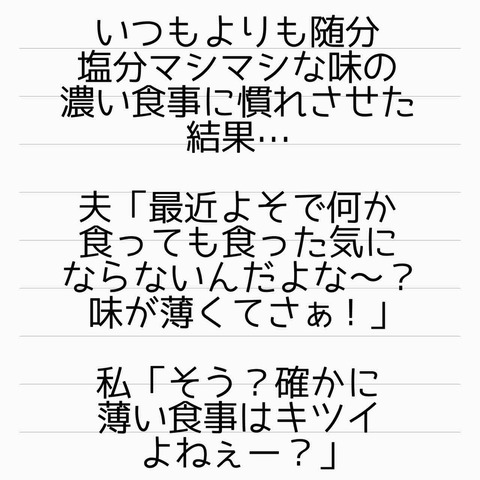 いつもよりも随分
塩分マシマシな味の
濃い食事に慣れさせた
結果…
夫「最近よそで何か
食っても食った気に
ならないんだよな〜？
味が薄くてさぁ！」
私「そう？確かに
薄い食事はキツイ
よねぇー？」